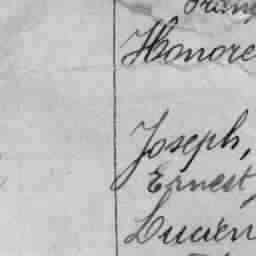 Honore
Joseph,
Ernest,
Lucien